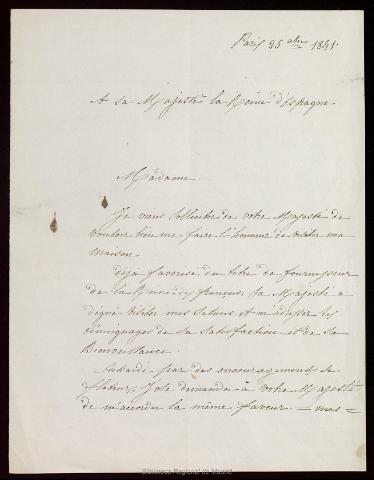 Paris 25 abre 1841.
A sa Majesté la Reine d'Espagne.
Madame
Je viens solliciter de votre Majesté de
vouloir bien me faire l'honneur de visiter ma
maison.
déja favorisé du titre de fournisseur
de la Reine des français, Sa Majesté a
digné visiter mes Salons et m'adresser les
témoignages de sa Satisfaction et de sa
Bienveillance.
Enhardi par des encouragements si
flatteurs, J'ose demander à votre Majesté
de m'accorder la même faveur = mes =
Biblioteca Regional de Madrid